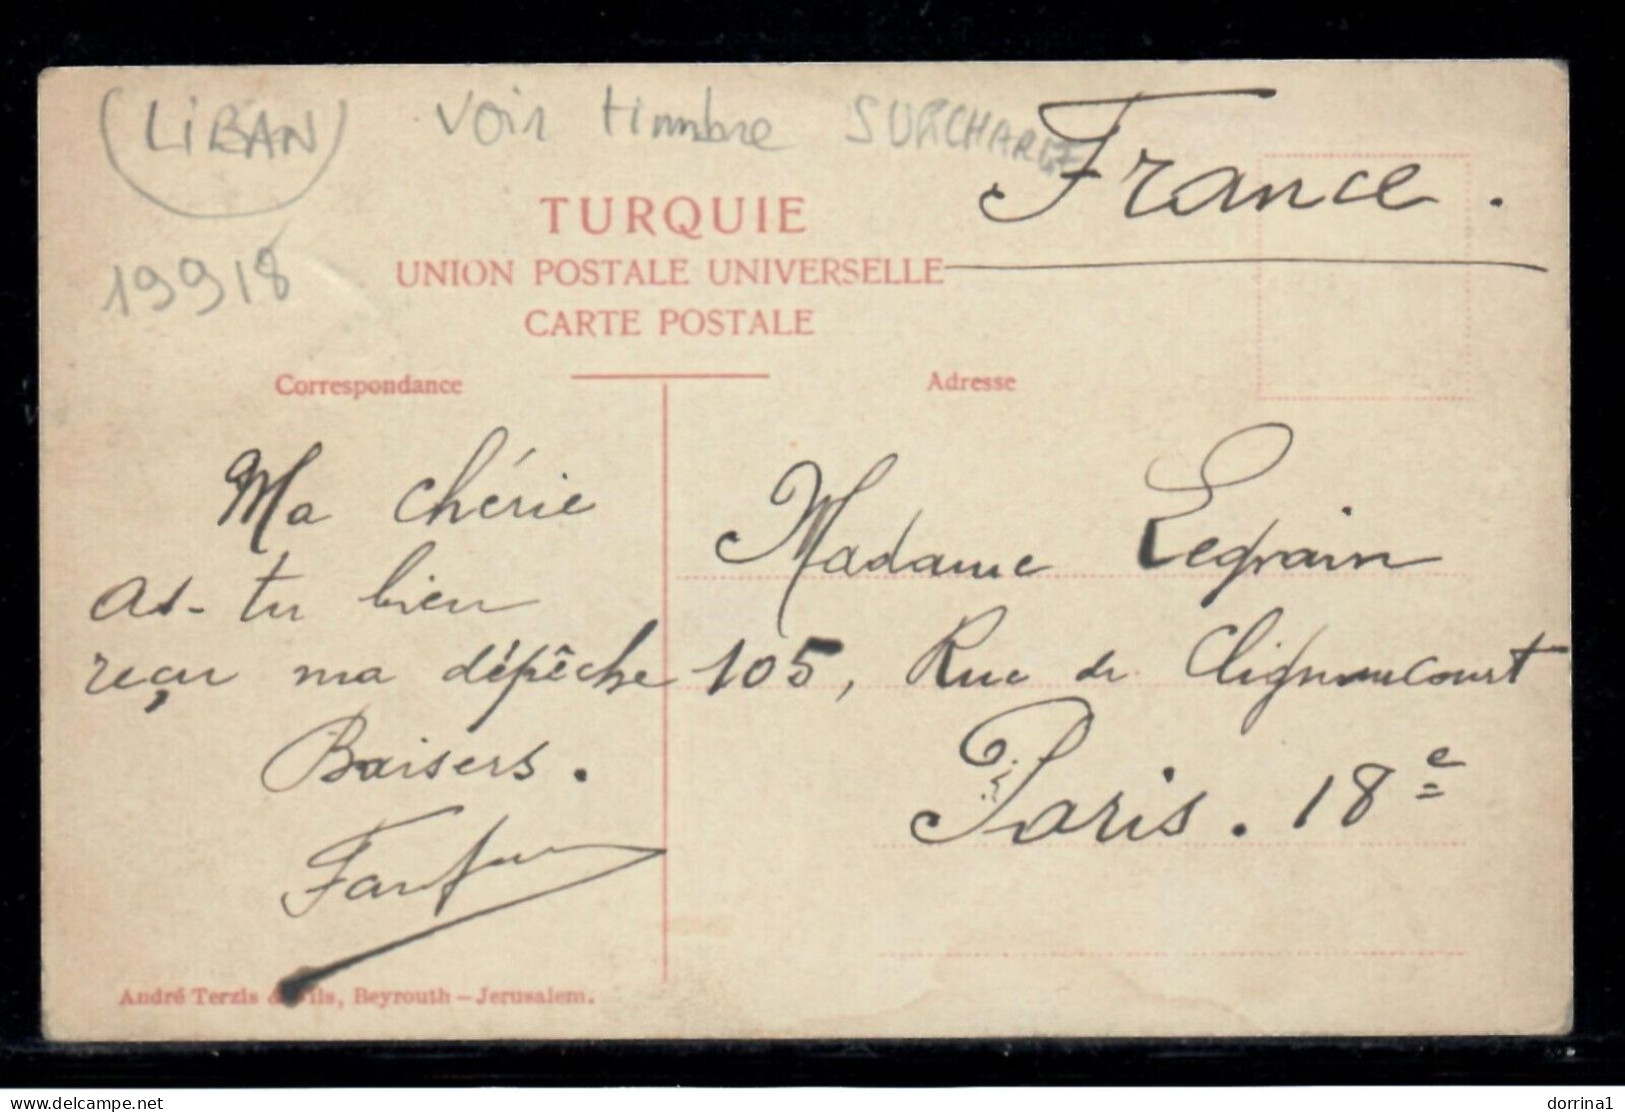 (LIBAN) voir timbre SURCHARGE
France.
19918
TURQUIE
UNION POSTALE UNIVERSELLE
CARTE POSTALE
Correspondance
Adresse
Ma chérie
as-tu bien
reçu ma dépêche
Baisers.
Madame Legrain
105, Rue de Clignancourt
Paris. 18e
André Terzis & Fils, Beyrouth – Jerusalem.
www.delcampe.net
dorrina1